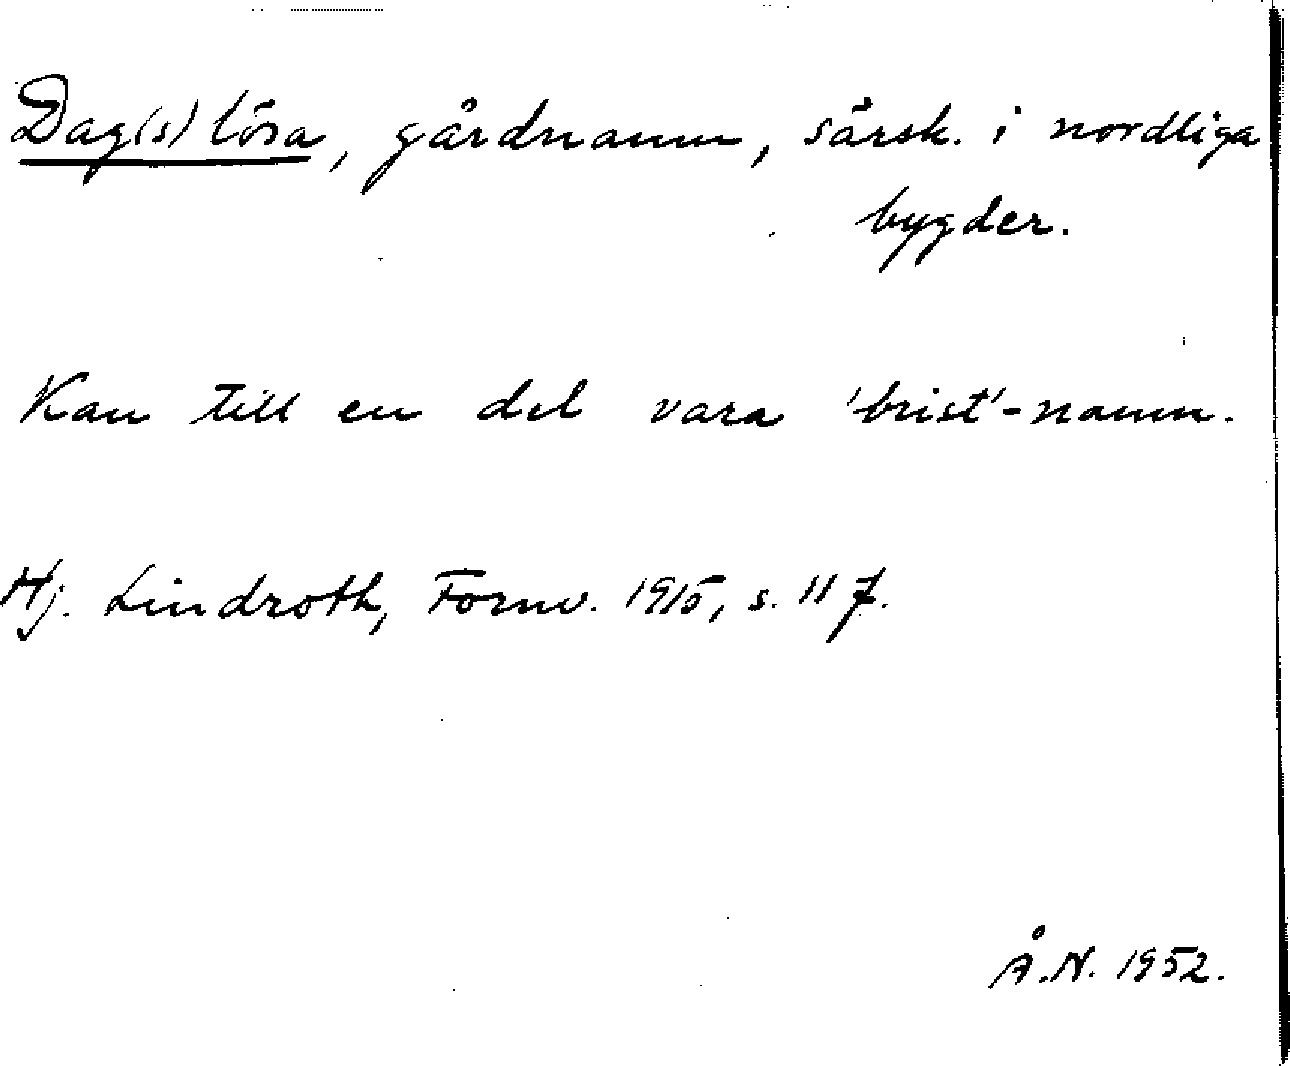 Dag(s)lösa, gårdnamn, särsk. i nordliga
bygder.
Kan till en del vara 'brist'-namn.
Hj. Lindroth, Fornv. 1915, s. 11 f.
Å.N. 1952.